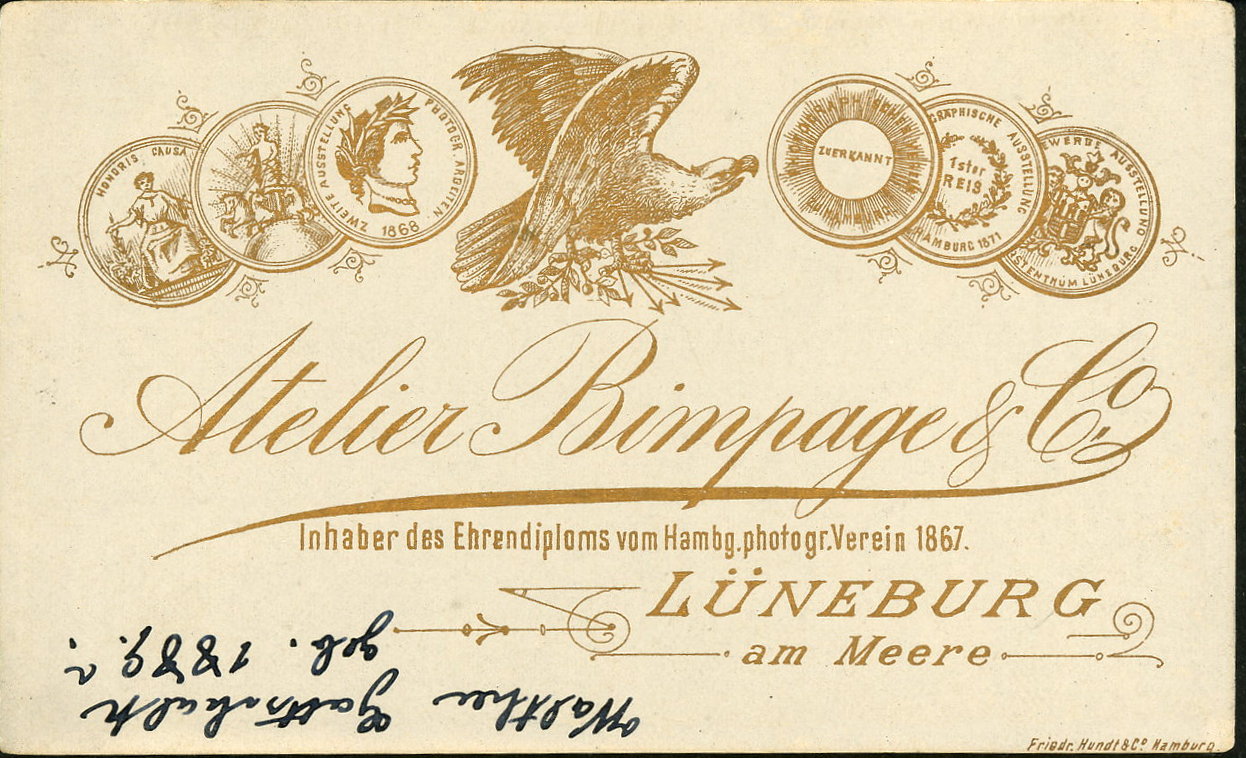 HONORIS CAUSA
ZWEITE AUSSTELLUNG PHOTOGR. ARBEITEN
1868
ZUERKANNT
GRAPHISCHE AUSSTELLUNG
1ster
PREIS
HAMBURG 1871
GEWERBE AUSSTELLUNG
FÜRSTENTHUM LÜNEBURG
Atelier Rimpage & Co.
Inhaber des Ehrendiploms vom Hambg. photogr. Verein 1867.
LÜNEBURG
am Meere
Friedr. Hundt & Co Hamburg.
Walther
geb. 1889